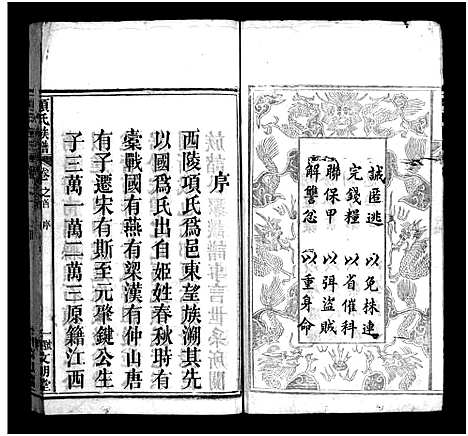 誡匿逃 以免株連
完錢糧 以省催科
聯保甲 以弭盜賊
解讐忿 以重身命
序
西陵項氏爲邑東望族溯其先
以國爲氏出自姬姓春秋時有
橐戰國有燕有梁漢有仲山唐
有子遷宋有斯至元聚鍵公生
子三萬一萬二萬三原籍江西
項氏族譜
卷之首 序